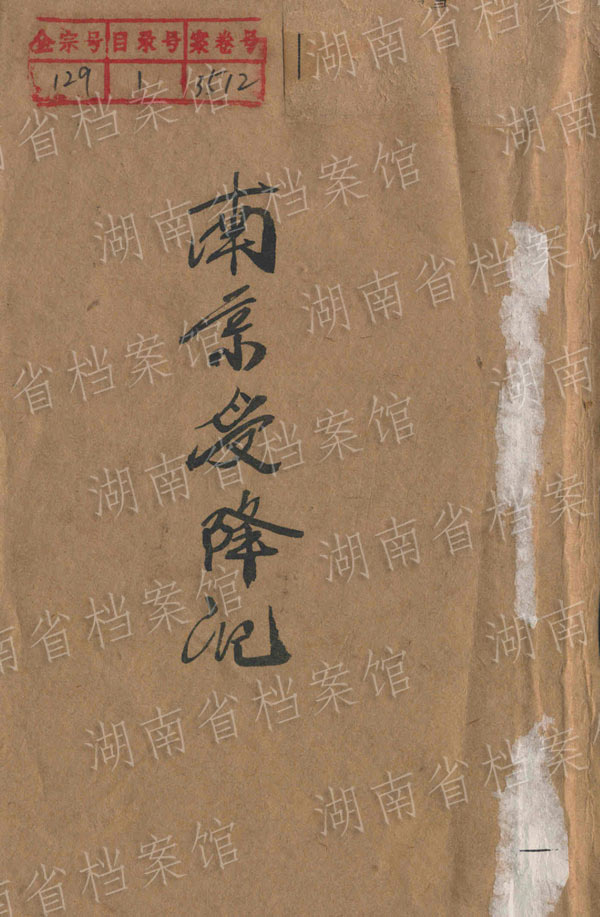 全宗号 目录号 案卷号
129 1 3512
南京受降记
湖南省档案馆